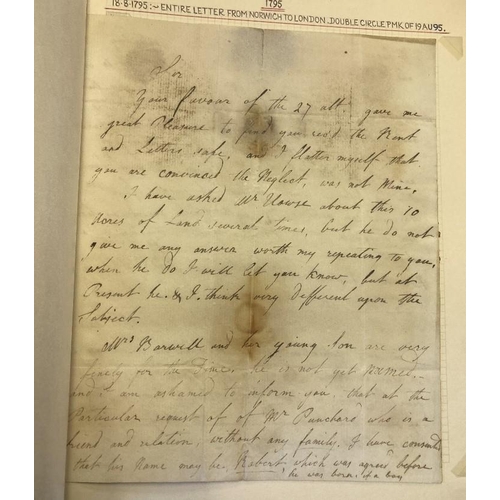 1795
18-8-1795:- ENTIRE LETTER FROM NORWICH TO LONDON. DOUBLE CIRCLE PMK OF 19 AU 95.
Sir
Your favour of the 27 ult gave me
great Pleasure to find you recd the Rent
and Letters safe, and I flatter myself that
you are convinced the Neglect, was not Mine,
I have asked Mr about this 10
Acres of Land several times, but he do not
give me any answer worth my repeating to you,
when he do I will let you know, but at
Present he & I think very different upon the
Subject.
Mrs Barwell and her young Son are very
for the time, he is not yet named
and I am ashamed to inform you, that at the
Particular request of of Mr Punchard who is a
friend and relation, without any family, I have consented
that his Name may be, Robert, which was agreed before
he was born, if a boy